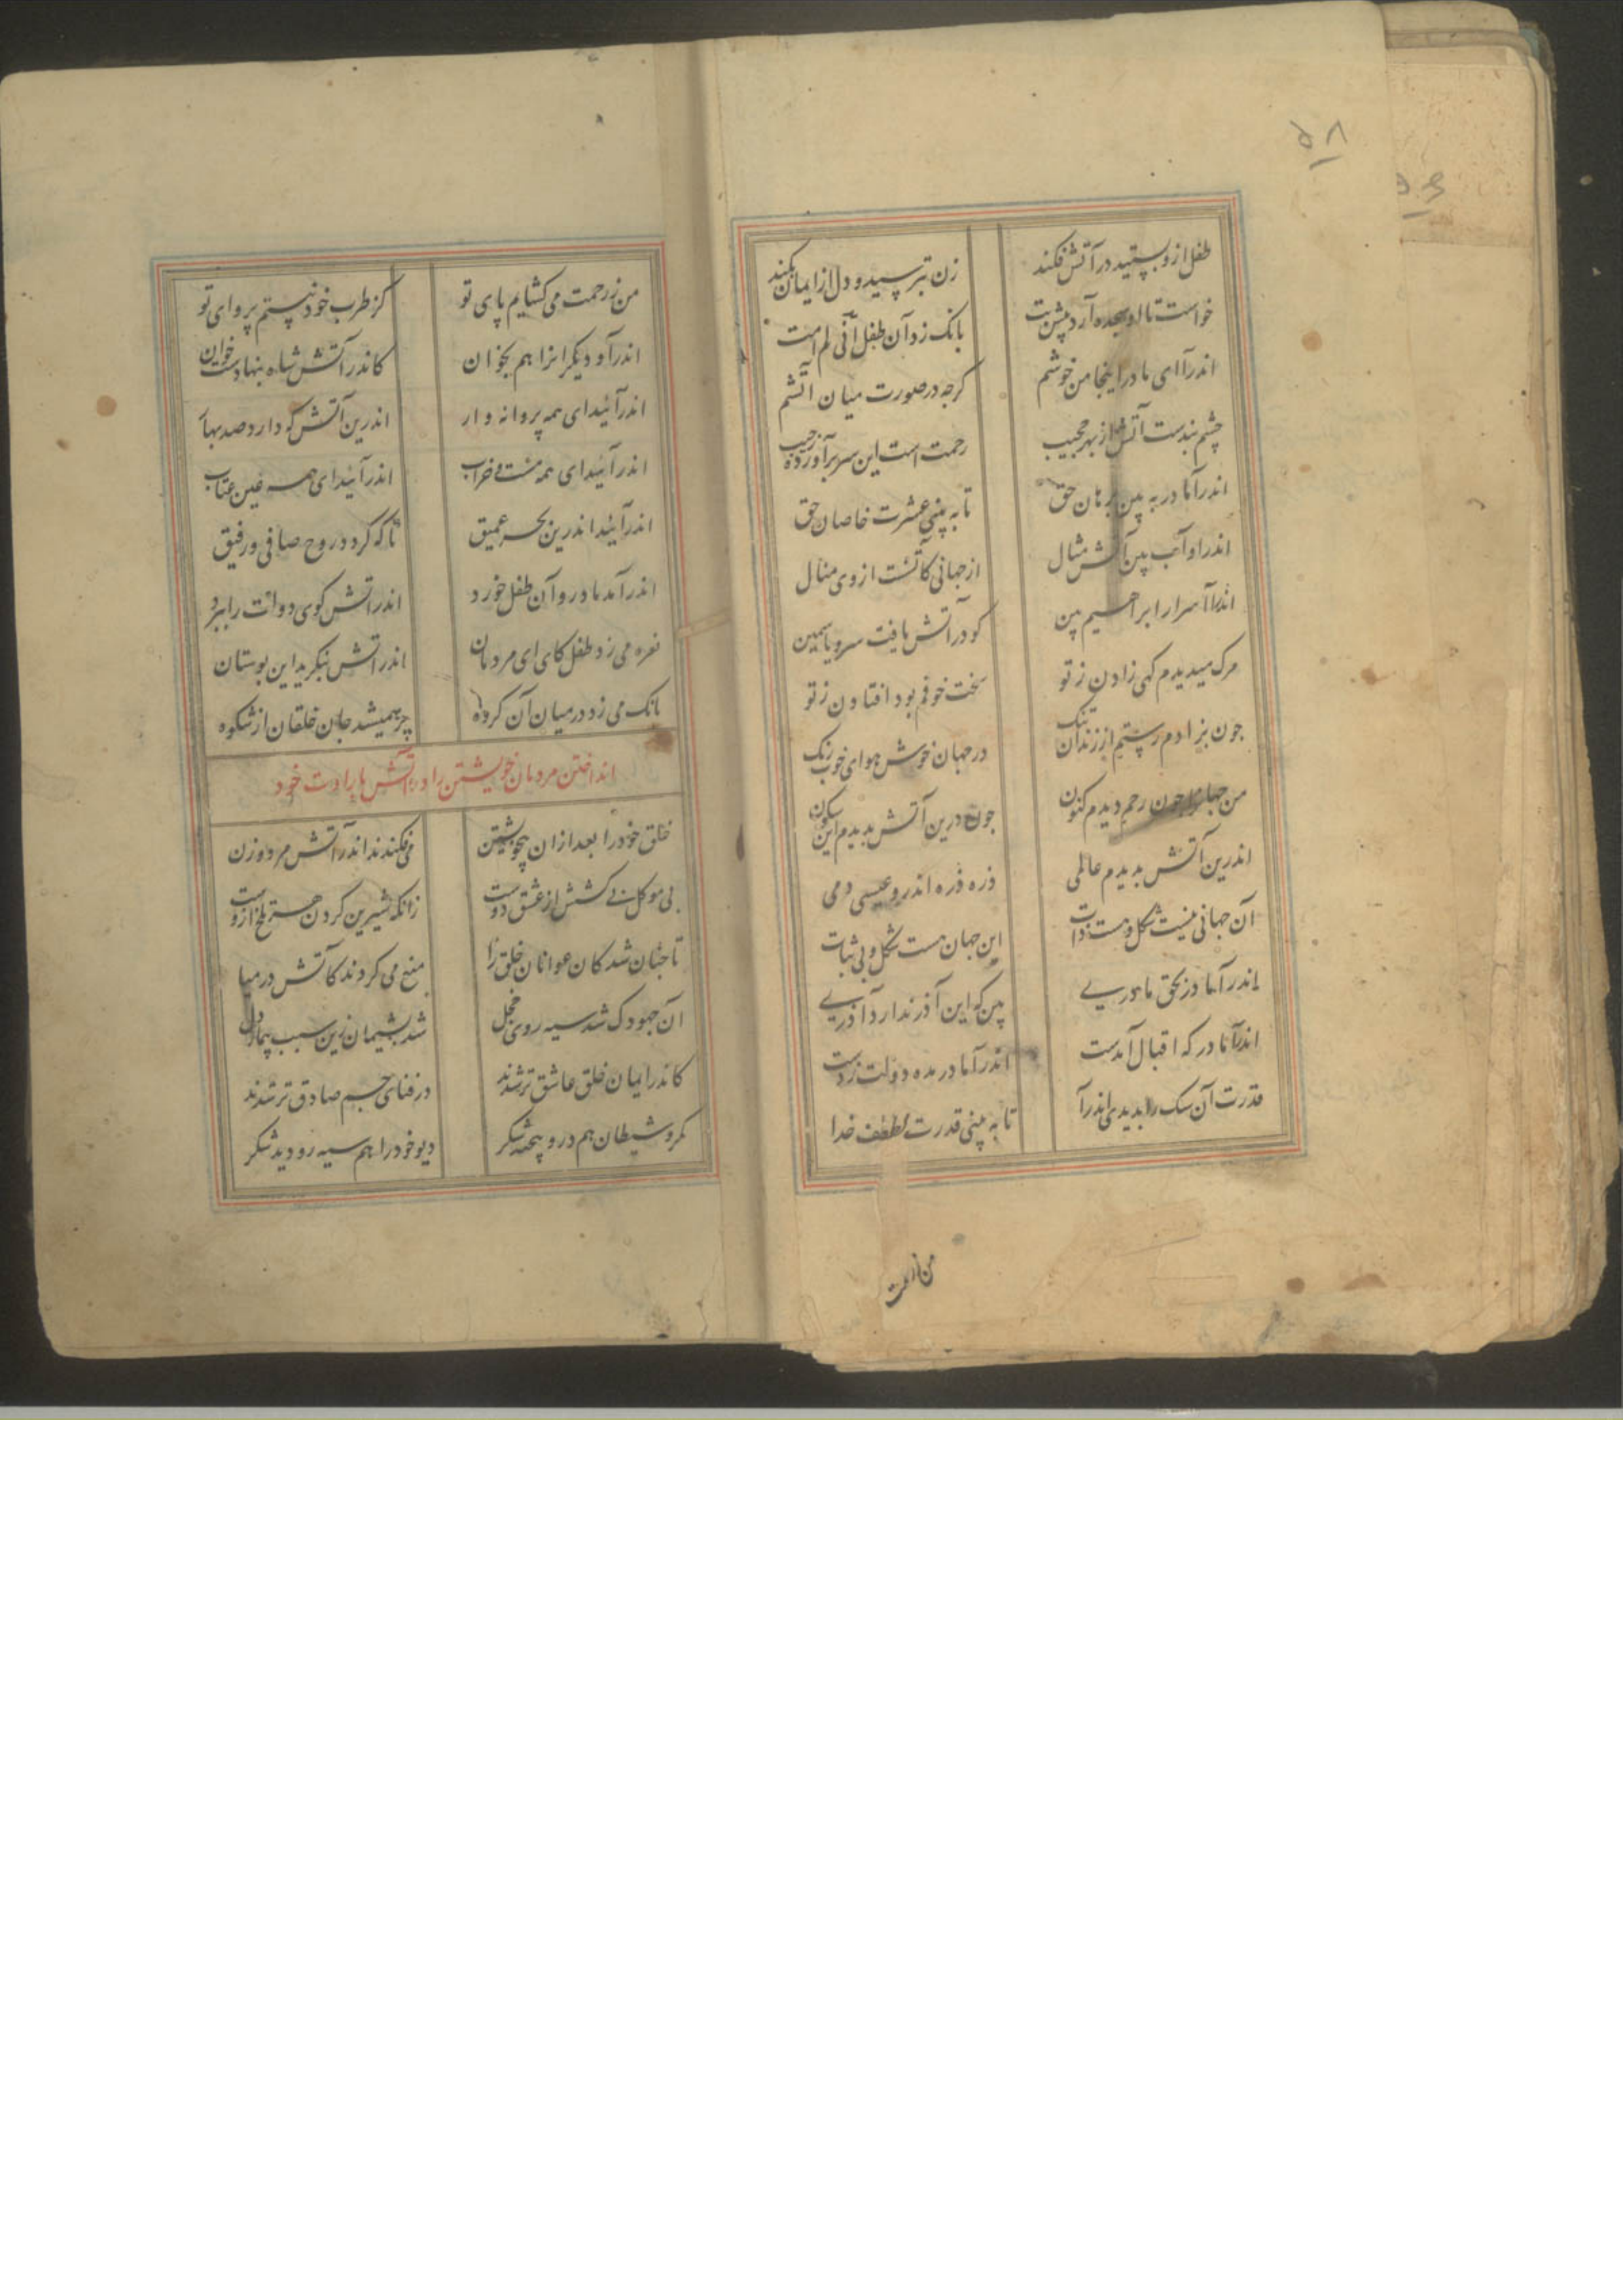 ۵۸
طفل ازو بستید در آتش فکند
زن بترسید و دل از ایمان بکند
خواست تا او سجده آرد پیش بت
بانک زد آن طفل انی لم امت
اندرآ ای مادر اینجا من خوشم
کرچه در صورت میان آتشم
چشم بندست آتش از بهر حجیب
رحمت است این سر برآورده ز جیب
اندرآ مادر به بین برهان حق
تا به بینی عشرت خاصان حق
اندرا و آب بین آتش مثال
از جهانی کآتشت از وی مثال
اندرآ اسرار ابراهیم بین
کو در آتش یافت سرو یاسمین
مرک میدیدم کهی زادن ز تو
سخت خوفم بود افتادن ز تو
جون بزادم رستم از زندان تنک
در جهان خوش هوای خوب رنک
من جهانرا جون رحم دیدم کنون
جون درین آتش بدیدم این سکون
اندرین آتش بدیدم عالمی
ذره ذره اندرو عیسی دمی
آن جهانی نیست شکل و هست ذات
این جهان هست شکل و بی ثبات
اندرآ مادر بحق مادریے
بین که این آذر ندارد آذریے
اندرآ مادر که اقبال آمدست
اندرآ مادر مده دولت ز دست
قدرت آن سک را بدیدی اندرآ
تا به بینی قدرت لطف خدا
من از رحمت
من ز رحمت می کشایم پای تو
کز طرب خود نیستم پروای تو
اندرآ و دیکرانرا هم بخوان
کاندر آتش شاه بنهادست خوان
اندرآئید ای همه پروانه وار
اندرین آتش که دارد صد بهآ
اندرآئید ای همه مست خراب
اندرآئید ای همه عین عتاب
اندرآئید اندرین بحر عمیق
تا که کردد روح صافی و رفیق
اندرآمد مادر و آن طفل خورد
اندر آتش کوی دولت را ببرد
نعره می زد طفل کای ای مردمان
اندر آتش بنکرید این بوستان
بانک می زد در میان آن کروه
پر همیشد جان خلقان از شکوه
انداختن مردمان خویشتن را در آتش بارادت خود
خلق خود را بعد از ان بیخویشتن
می فکندند اندر آتش مرد و زن
بی موکل بی کشش از عشق دوست
زانکه شیرین کردن هر تلخ ازوست
تا جنان شد کان عوانان خلق را
منع می کردند کآتش در میا
آن جهودک شد سیه روی خجل
شد پشیمان زین سبب بیمار دل
کاندر ایمان خلق عاشق تر شدند
در فنای جسم صادق تر شدند
مکر و شیطان هم درو پیچید شکر
دیو خود را هم سیه رو دید شکر